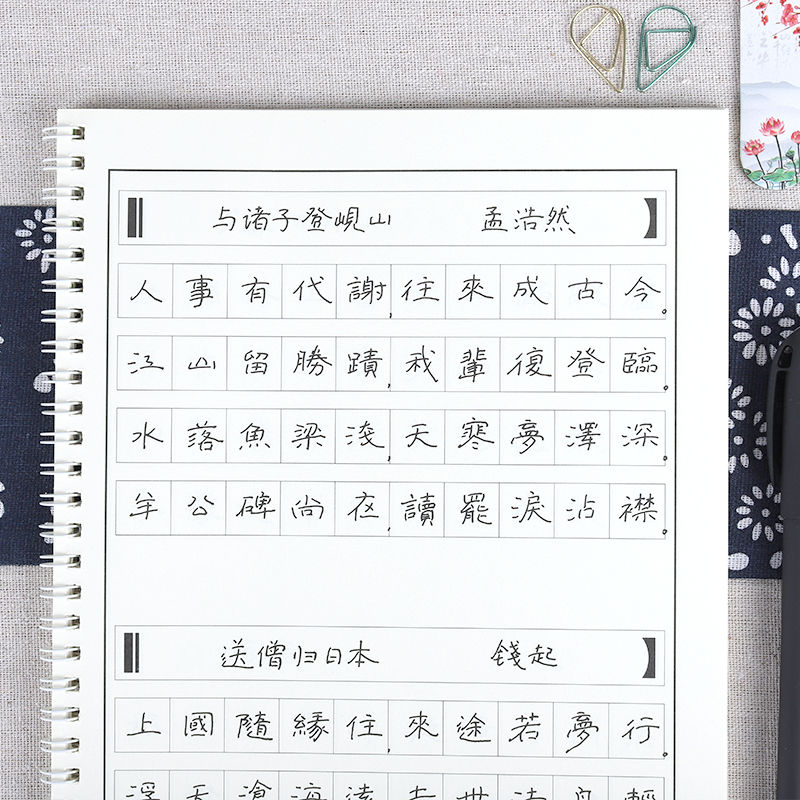 与诸子登岘山 孟浩然
人事有代謝,往來成古今。
江山留勝蹟,我輩復登臨。
水落魚梁淺,天寒夢澤深。
羊公碑尚在,讀罷淚沾襟。
送僧归日本 錢起
上國隨緣住,來途若夢行。
浮天滄海遠,去世法舟輕